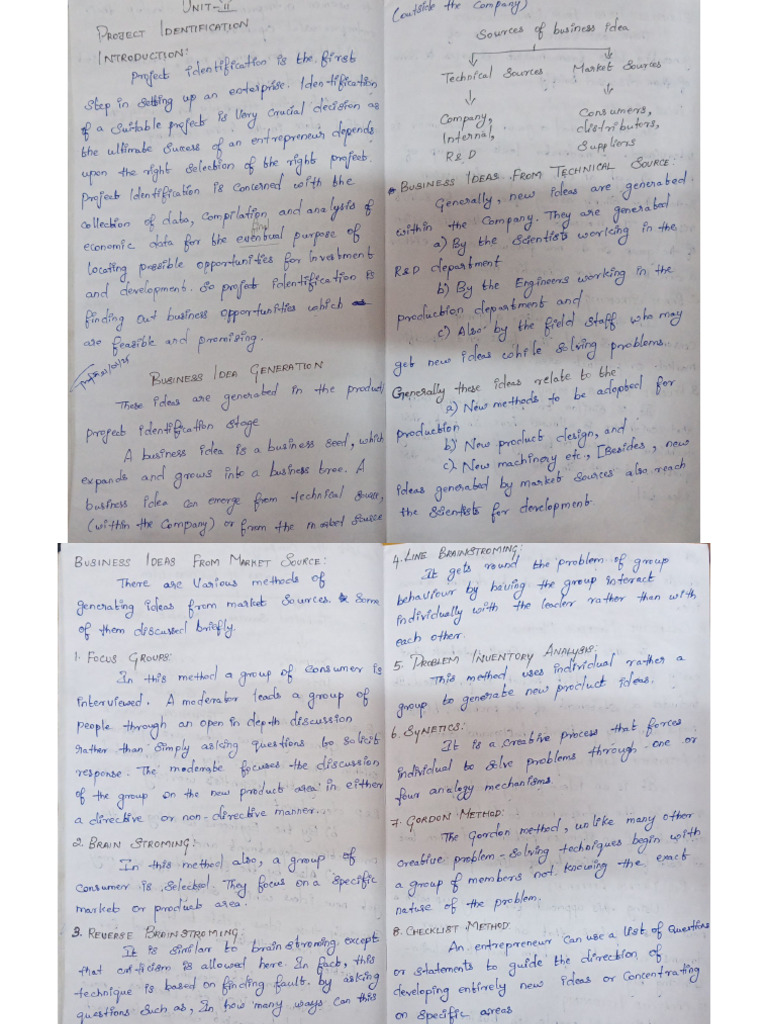 UNIT-II
PROJECT IDENTIFICATION
INTRODUCTION:
Project identification is the first
step in setting up an enterprise. Identification
of a suitable project is very crucial decision as
the ultimate success of an entrepreneur depends
upon the right selection of the right project.
Project Identification is concerned with the
collection of data, compilation and analysis of
economic data for the eventual purpose of
locating possible opportunities for Investment
and development. So project identification is
finding out business opportunities which
are feasible and promising.
BUSINESS IDEA GENERATION
These ideas are generated in the product/
project identification stage
A business idea is a business seed, which
expands and grows into a business tree. A
business idea can emerge from technical source,
(within the company) or from the market source
(outside the company)
Sources of business idea
Technical Sources Market Sources
Company, Consumers,
Internal, distributors,
R&D Suppliers
* BUSINESS IDEAS FROM TECHNICAL SOURCE:
Generally, new ideas are generated
within the company. They are generated
a) By the Scientists working in the
R&D department
b) By the Engineers working in the
production department and
c) Also by the field staff who may
get new ideas while solving problems.
Generally these ideas relate to the
a) New methods to be adopted for
production
b) New product design, and
c) New machinery etc., [Besides, new
ideas generated by market sources also reach
the Scientists for development.
BUSINESS IDEAS FROM MARKET SOURCE:
There are various methods of
generating ideas from market sources. Some
of them discussed briefly.
1. FOCUS GROUPS:
In this method a group of consumer is
interviewed. A moderator leads a group of
people through an open in depth discussion
rather than simply asking questions to solicit
response. The moderate focuses the discussion
of the group on the new product area in either
a directive or non-directive manner.
2. BRAIN STROMING:
In this method also, a group of
consumer is selected. They focus on a specific
market or product area.
3. REVERSE BRAINSTROMING:
It is similar to brainstroming except
that criticism is allowed here. In fact, this
technique is based on finding fault by asking
questions such as, In how many ways can this
4. LINE BRAINSTROMING:
It gets round the problem of group
behaviour by having the group interact
individually with the leader rather than with
each other.
5. PROBLEM INVENTORY ANALYSIS:
This method uses individual rather a
group to generate new product ideas.
6. SYNETICS:
It is a creative process that forces
individual to solve problems through one or
four analogy mechanisms.
7. GORDON METHOD:
The Gordon method, unlike many other
creative problem-solving techniques begin with
a group of members not knowing the exact
nature of the problem.
8. CHECKLIST METHOD:
An entrepreneur can use a list of questions
or statements to guide the direction of
developing entirely new ideas or concentrating
on specific areas